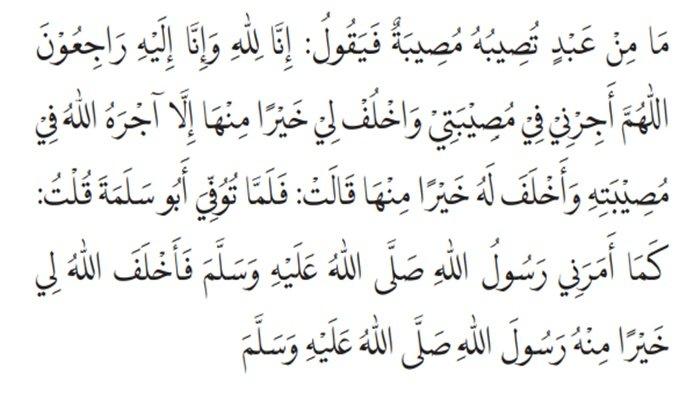 مَا مِنْ عَبْدٍ تُصِيبُهُ مُصِيبَةٌ فَيَقُولُ: إِنَّا لِلّٰهِ وَإِنَّا إِلَيْهِ رَاجِعُوْنَ
اللّٰهُمَّ أَجِرْنِيْ فِيْ مُصِيْبَتِيْ وَاخْلُفْ لِي خَيْرًا مِنْهَا إِلَّا آجَرَهُ اللّٰهُ فِيْ
مُصِيْبَتِهِ وَأَخْلَفَ لَهُ خَيْرًا مِنْهَا قَالَتْ: فَلَمَّا تُوُفِّيَ أَبُو سَلَمَةَ قُلْتُ:
كَمَا أَمَرَنِي رَسُولُ اللّٰهِ صَلَّى اللّٰهُ عَلَيْهِ وَسَلَّمَ فَأَخْلَفَ اللّٰهُ لِي
خَيْرًا مِنْهُ رَسُولَ اللّٰهِ صَلَّى اللّٰهُ عَلَيْهِ وَسَلَّمَ